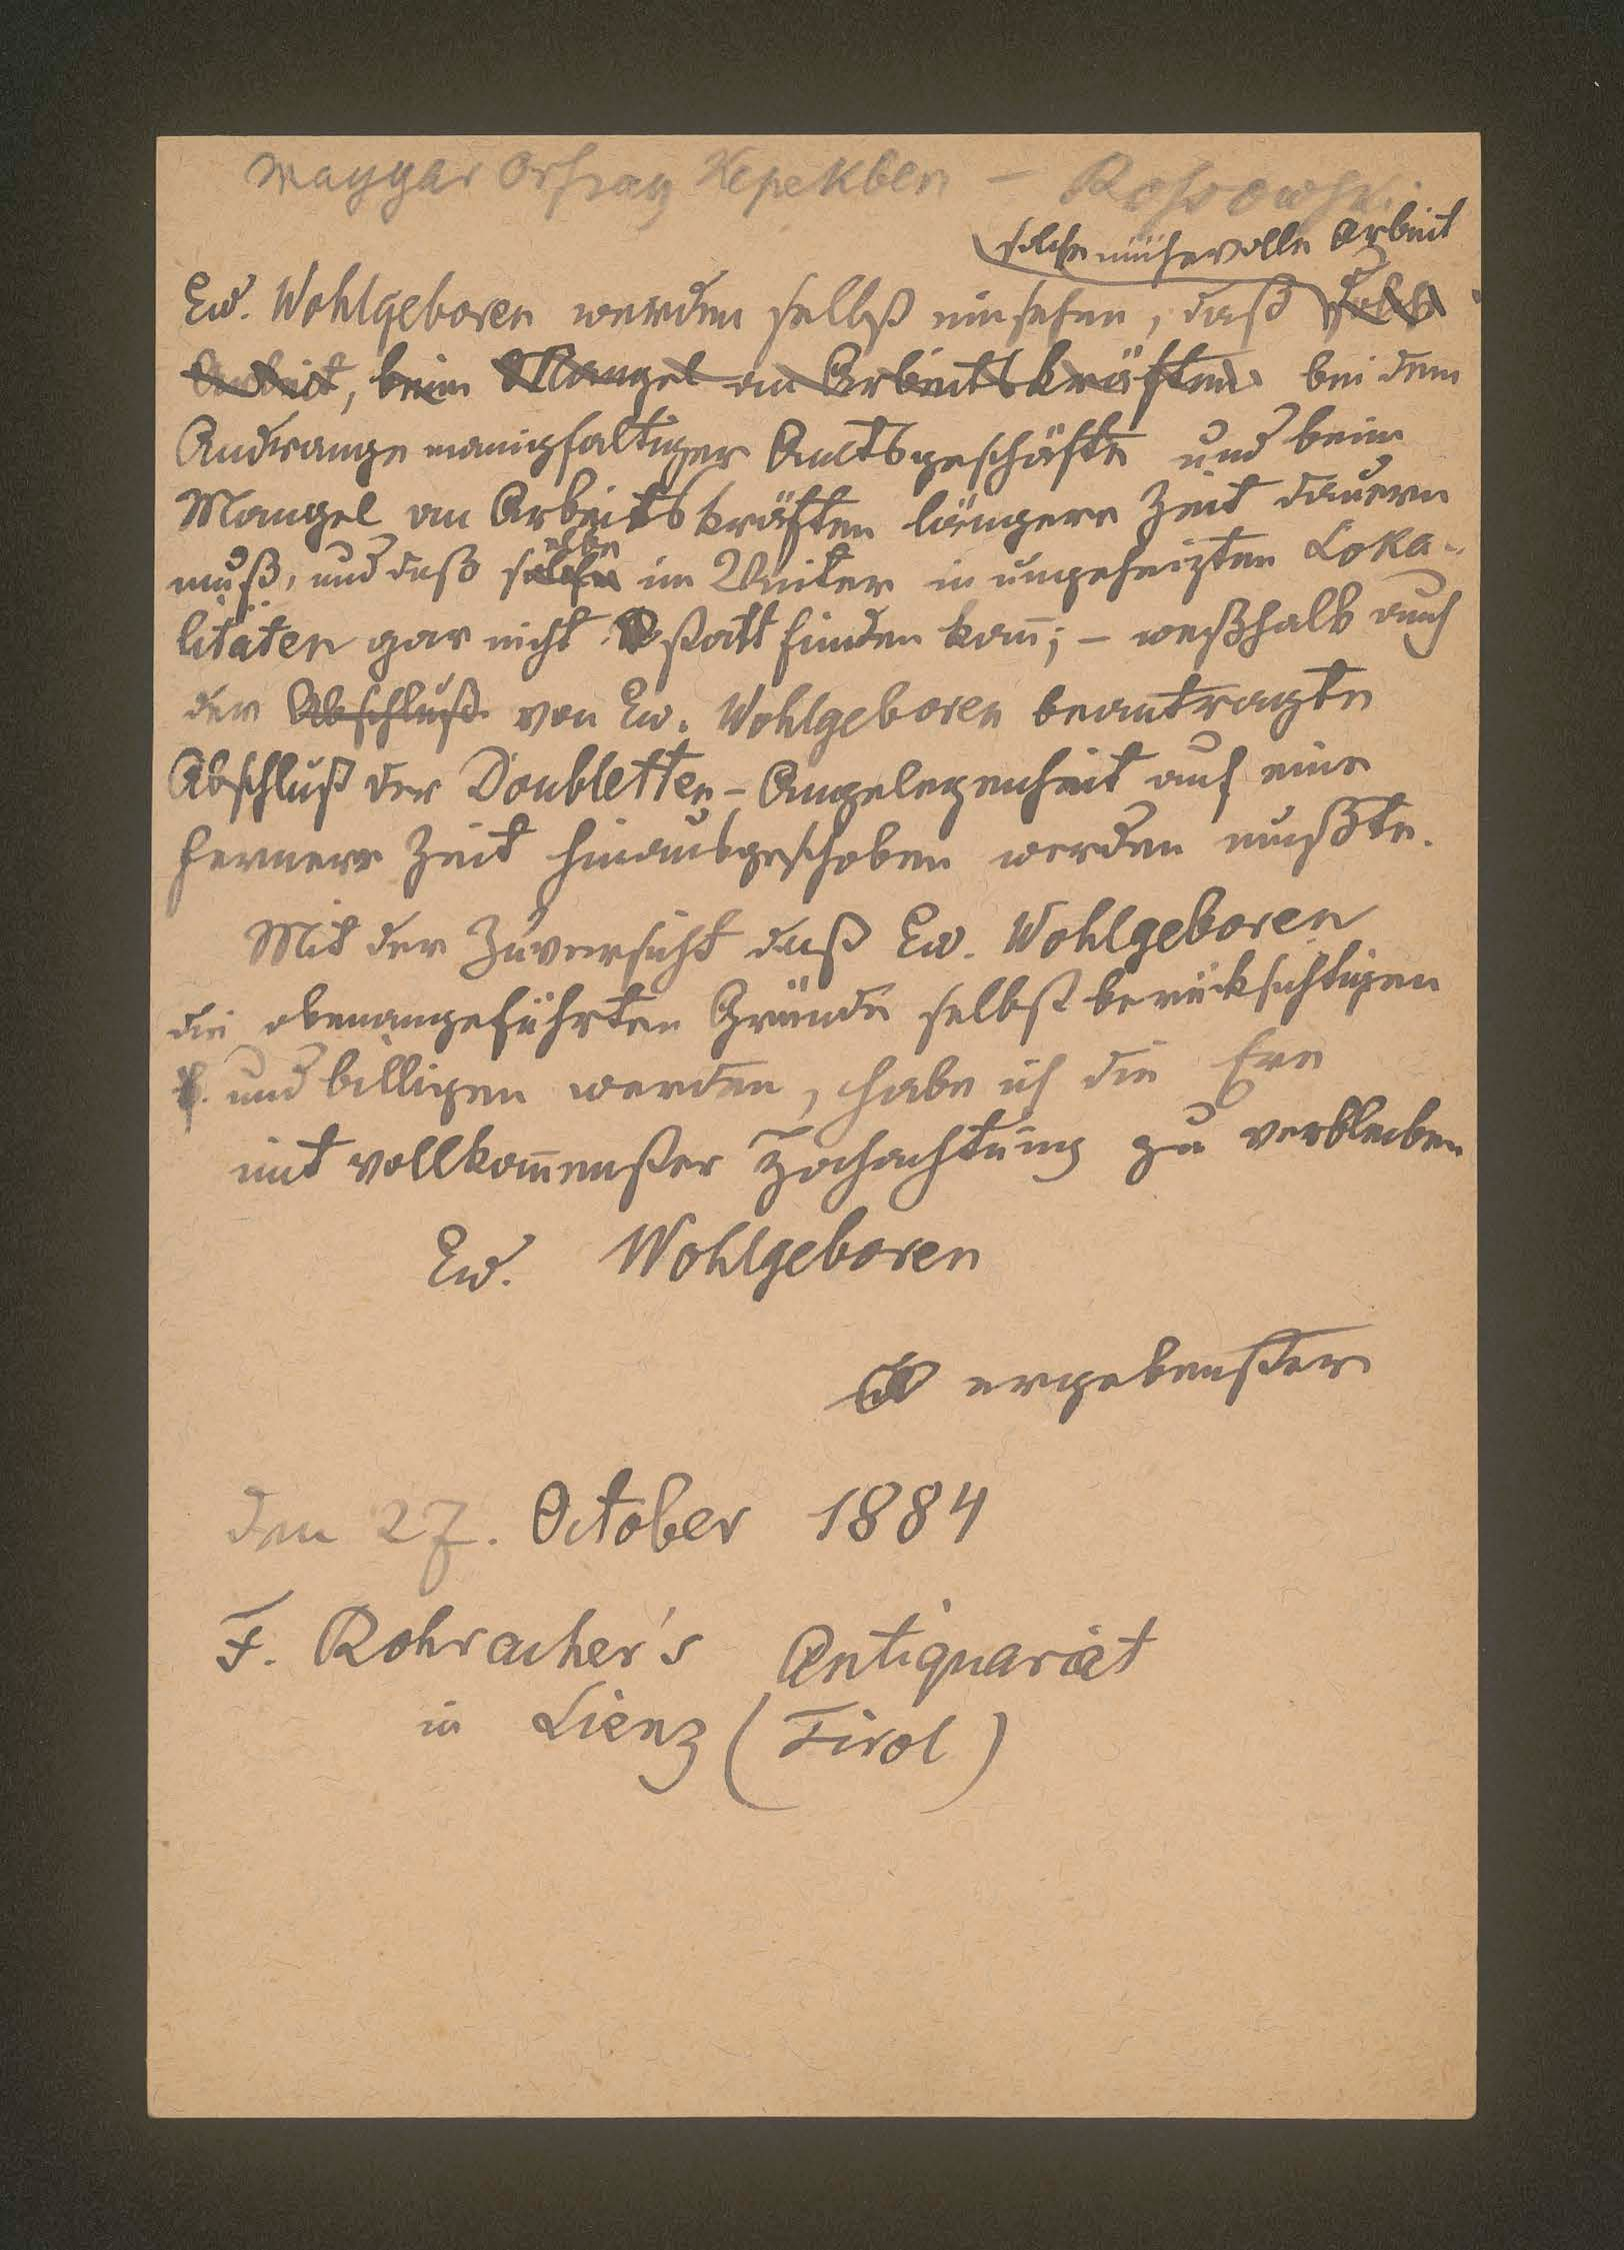 Magyar Orszag Kepekben –
solche mühevolle Arbeit
Ew. Wohlgeboren werden selbst einsehen, daß solch
Arbeit, beim Mangel an Arbeitskräften bei dem
Andrange mannigfaltiger Amtsgeschäfte und beim
Mangel an Arbeitskräften längere Zeit dauern
muß, und daß solche im Winter in ungeheizten Loka-
litäten gar nicht statt finden kan̄; – weßhalb auch
der Abschluß von Ew. Wohlgeboren beantragte
Abschluß der Doubletten-Angelegenheit auf eine
fernere Zeit hinausgeschoben werden mußte.
Mit der Zuversicht daß Ew. Wohlgeboren
die obenangeführten Gründe selbst berücksichtigen
und billigen werden, habe ich die Ere
mit vollkom̄enster Hochachtung zu verbleiben
Ew. Wohlgeboren
ergebenster
den 27. October 1884
F. Rohracher's Antiquariat
in Lienz (Tirol)